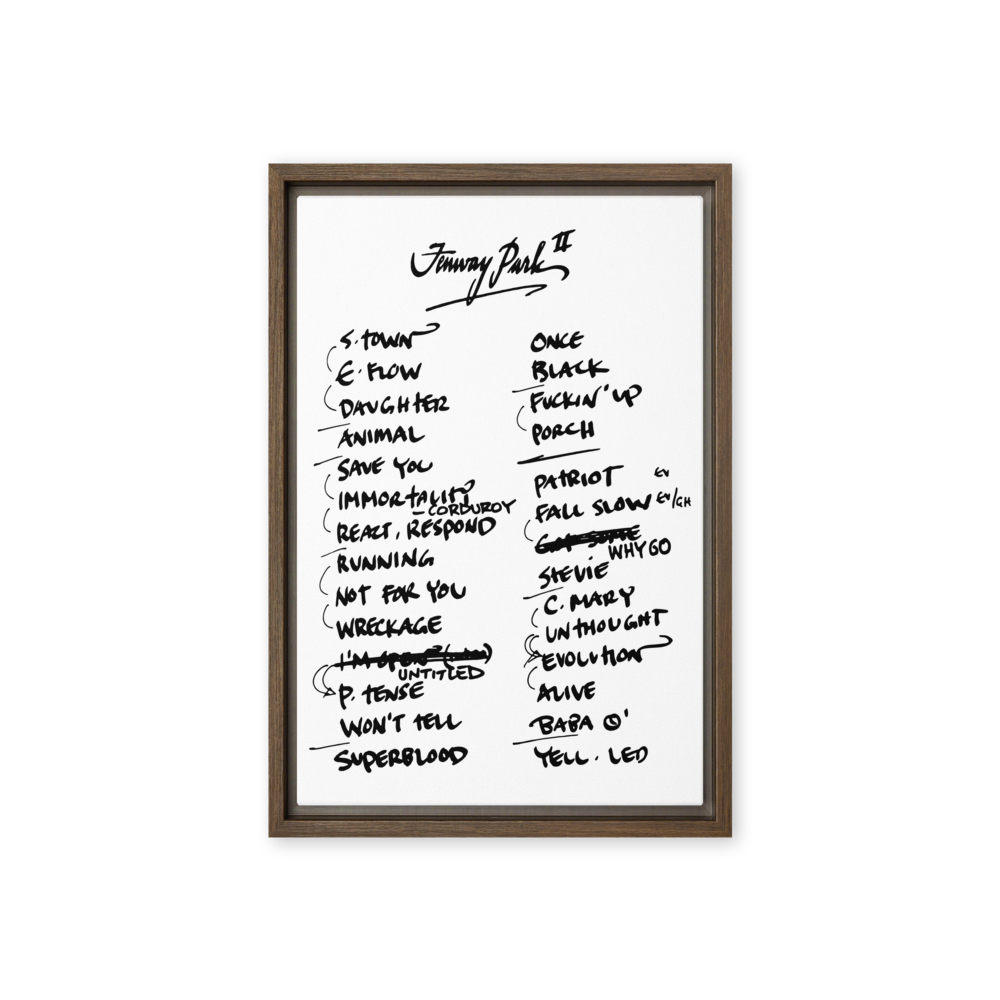 Fenway Park II
S. TOWN
E. FLOW
DAUGHTER
ANIMAL
SAVE YOU
IMMORTALITY
- CORDUROY
REACT, RESPOND
RUNNING
NOT FOR YOU
WRECKAGE
I'M OPEN
UNTITLED
P. TENSE
WON'T TELL
SUPERBLOOD
ONCE
BLACK
FUCKIN' UP
PORCH
PATRIOT EV
FALL SLOW EV/GH
GOT SOME
WHY GO
STEVIE
C. MARY
UNTHOUGHT
EVOLUTION
ALIVE
BABA O'
YELL. LED